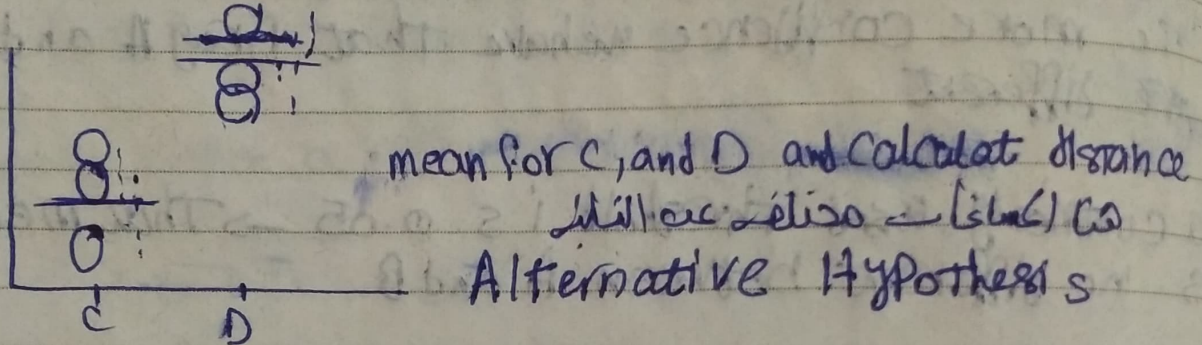 mean for C, and D and Calculat distance
مختلف عن
Alternative Hypothesis
C
D